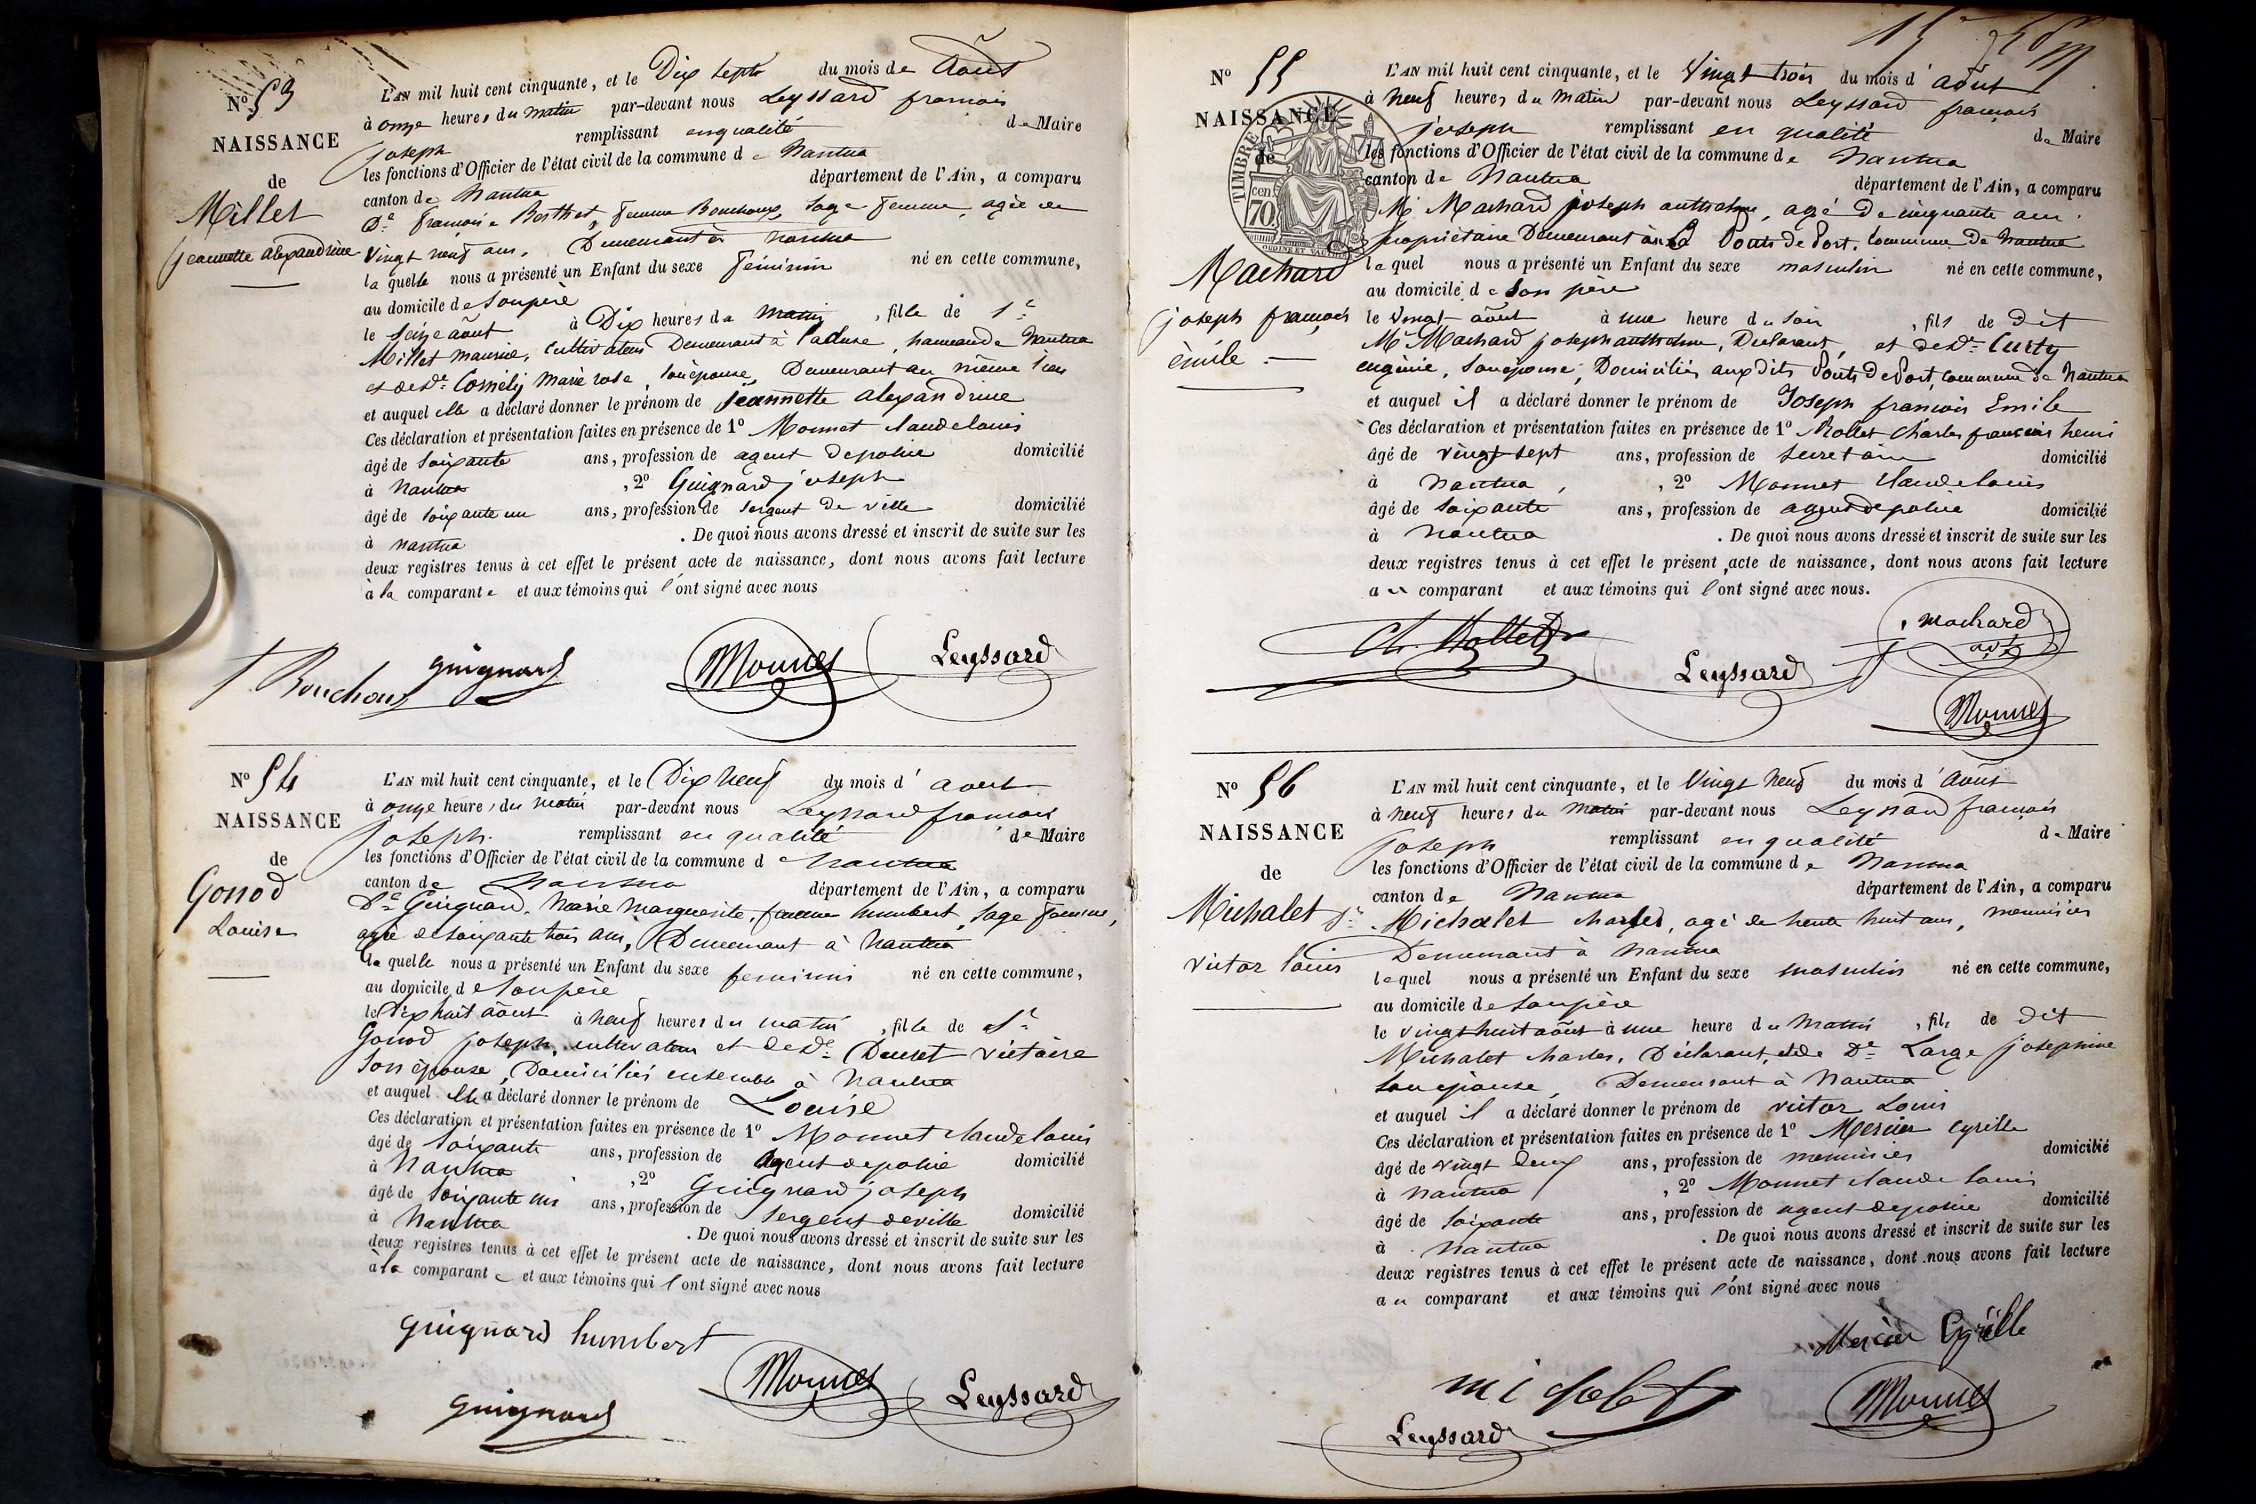 N° 53
NAISSANCE
de
Millet
jeannette alexandrine
L'AN mil huit cent cinquante, et le Dix sept du mois de Août
à onze heures du matin par-devant nous Leyssard françois
joseph remplissant en qualité de Maire
les fonctions d'Officier de l'état civil de la commune de Nantua
canton de Nantua département de l'Ain, a comparu
De françoise Berthet, femme Bouchoux, sage femme, agée de
Vingt neuf ans, Demeurant à Nantua
laquelle nous a présenté un Enfant du sexe féminin né en cette commune,
au domicile de son père
le seize août à Dix heures du matin, fille de Sr
Millet Maurice, cultivateur Demeurant à hameau de Nantua
et de De Marie rose, son épouse, Demeurant au même lieu
et auquel elle a déclaré donner le prénom de jeannette alexandrine
Ces déclaration et présentation faites en présence de 1° Monnet claude louis
âgé de soixante ans, profession de agent de police domicilié
à Nantua, 2° Guignard joseph
âgé de soixante un ans, profession de sergent de ville domicilié
à nantua. De quoi nous avons dressé et inscrit de suite sur les
deux registres tenus à cet effet le présent acte de naissance, dont nous avons fait lecture
à la comparante et aux témoins qui l'ont signé avec nous
f Bouchoux guignard Monnet Leyssard
N° 54
NAISSANCE
de
Gonod
Louise
L'AN mil huit cent cinquante, et le Dix neuf du mois d'août
à onze heures du matin par-devant nous Leyssard françois
joseph. remplissant en qualité de Maire
les fonctions d'Officier de l'état civil de la commune de Nantua
canton de Nantua département de l'Ain, a comparu
De Guignard, Marie Marguerite, femme humbert, sage femme,
agée de soixante trois ans, Demeurant à Nantua
laquelle nous a présenté un Enfant du sexe feminin né en cette commune,
au domicile de son père
le Dix huit août à neuf heures du matin, fille de Sr
Gonod joseph, cultivateur et de De Douset victoire
son épouse, Domiciliés ensemble à Nantua
et auquel elle a déclaré donner le prénom de Louise
Ces déclaration et présentation faites en présence de 1° Monnet claude louis
âgé de soixante ans, profession de agent de police domicilié
à Nantua, 2° Guignard joseph
âgé de soixante un ans, profession de sergent de ville domicilié
à Nantua. De quoi nous avons dressé et inscrit de suite sur les
deux registres tenus à cet effet le présent acte de naissance, dont nous avons fait lecture
à la comparante et aux témoins qui l'ont signé avec nous
guignard humbert
guignard Monnet Leyssard
N° 55
NAISSANCE
de
Machard
joseph françois
émile
TIMBRE
70 cen.
L'AN mil huit cent cinquante, et le Vingt trois du mois d'août
à neuf heures du matin par-devant nous Leyssard françois
joseph remplissant en qualité de Maire
les fonctions d'Officier de l'état civil de la commune de Nantua
canton de Nantua département de l'Ain, a comparu
Mr Machard joseph anthelme, agé de cinquante ans
propriétaire Demeurant Ponts de Port, commune de Nantua
lequel nous a présenté un Enfant du sexe masculin né en cette commune,
au domicile de son père
le vingt août à une heure du soir, fils de dit
Mr Machard joseph anthelme, Déclarant, et de De Curty
eugénie, son épouse, Domiciliés aux dits Ponts de Port, commune de Nantua
et auquel il a déclaré donner le prénom de Joseph françois Emile
Ces déclaration et présentation faites en présence de 1° Mollet Charles françois henri
âgé de vingt sept ans, profession de secretaire domicilié
à Nantua, 2° Monnet claude louis
âgé de soixante ans, profession de agent de police domicilié
à Nantua. De quoi nous avons dressé et inscrit de suite sur les
deux registres tenus à cet effet le présent acte de naissance, dont nous avons fait lecture
au comparant et aux témoins qui l'ont signé avec nous.
Ch. Mollet Leyssard machard
Monnet
N° 56
NAISSANCE
de
Michalet
victor louis
L'AN mil huit cent cinquante, et le Vingt neuf du mois d'Août
à neuf heures du matin par-devant nous Leyssard françois
joseph remplissant en qualité de Maire
les fonctions d'Officier de l'état civil de la commune de Nantua
canton de Nantua département de l'Ain, a comparu
Sr Michalet charles, agé de trente huit ans, menuisier
Demeurant à Nantua
lequel nous a présenté un Enfant du sexe masculin né en cette commune,
au domicile de son père
le vingt huit août à une heure du matin, fils de dit
Michalet charles, Déclarant, et de De Large josephine
son épouse, Demeurant à Nantua
et auquel il a déclaré donner le prénom de victor Louis
Ces déclaration et présentation faites en présence de 1° Mercier cyrille
âgé de vingt deux ans, profession de menuisier domicilié
à Nantua, 2° Monnet claude louis
âgé de soixante ans, profession de agent de police domicilié
à Nantua. De quoi nous avons dressé et inscrit de suite sur les
deux registres tenus à cet effet le présent acte de naissance, dont nous avons fait lecture
au comparant et aux témoins qui l'ont signé avec nous
Mercier Cyrille
michalet Monnet
Leyssard